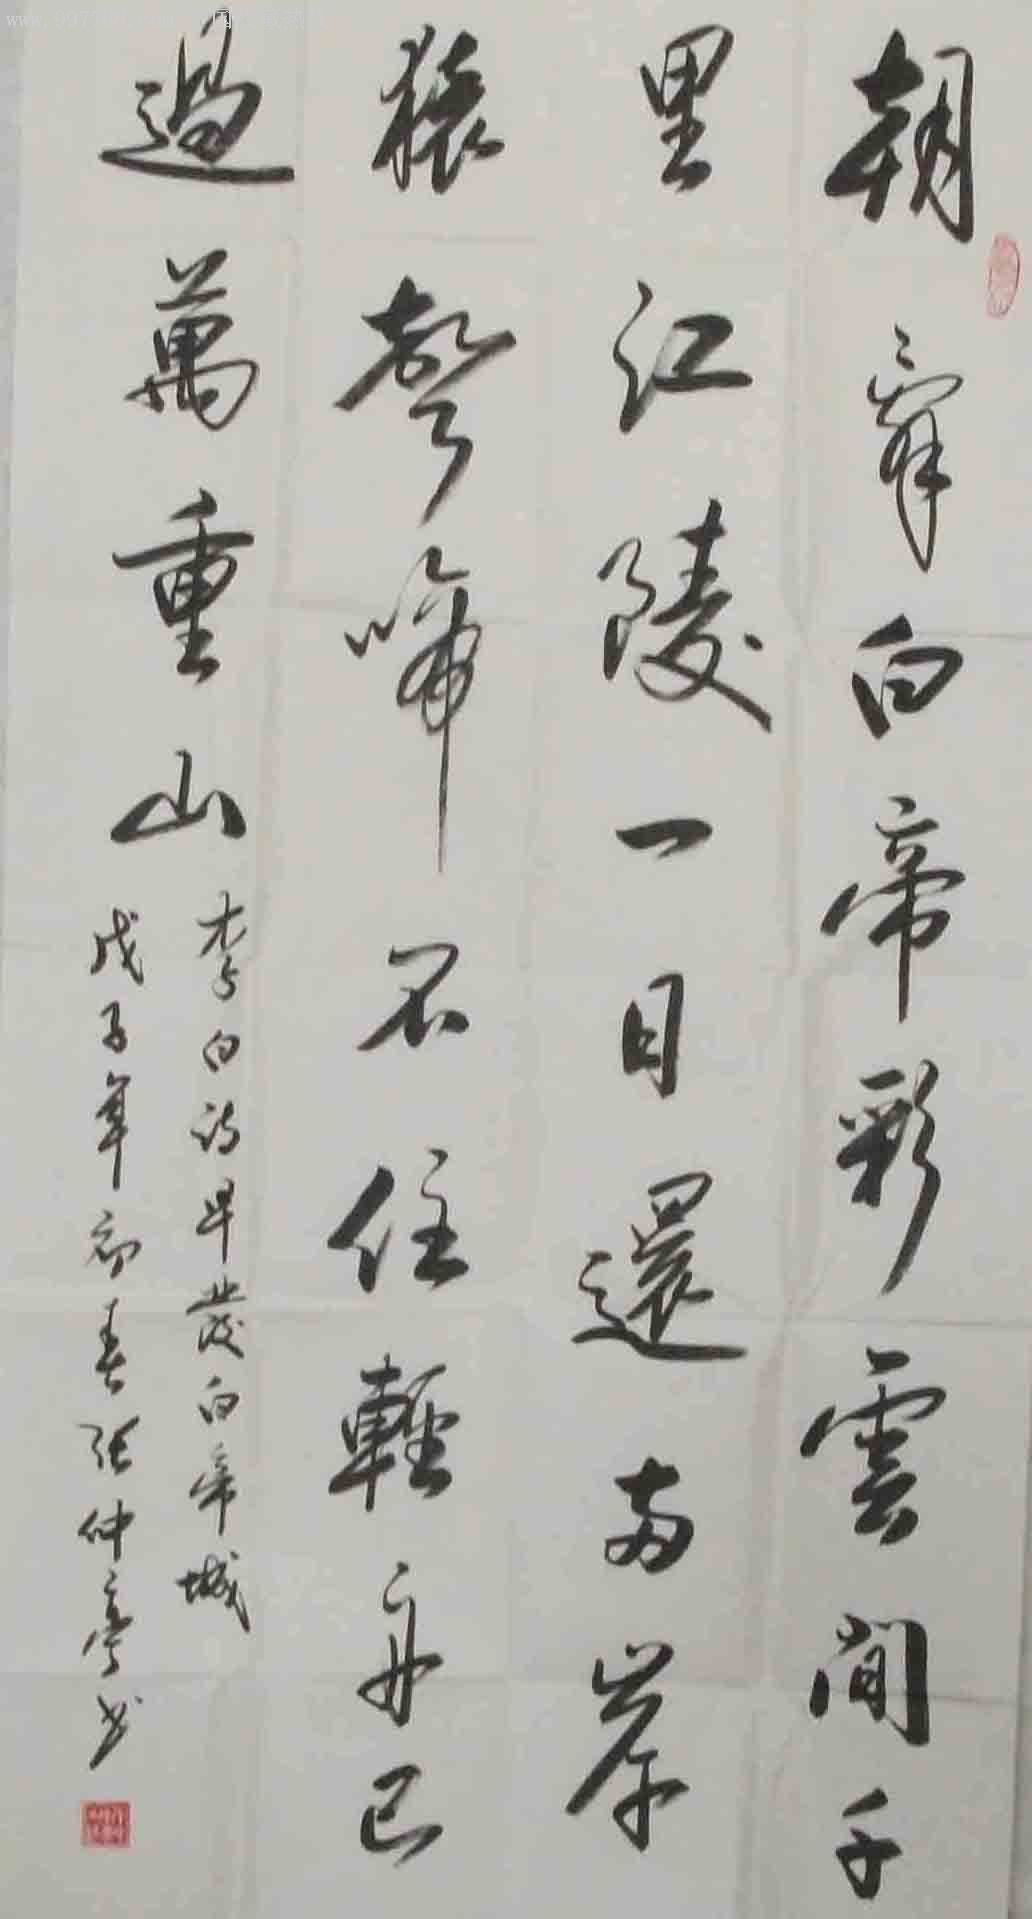 朝辭白帝彩雲間千
里江陵一日還两岸
猿聲啼不住輕舟已
過萬重山
李白诗早發白帝城
戊子年初春張仲亭书